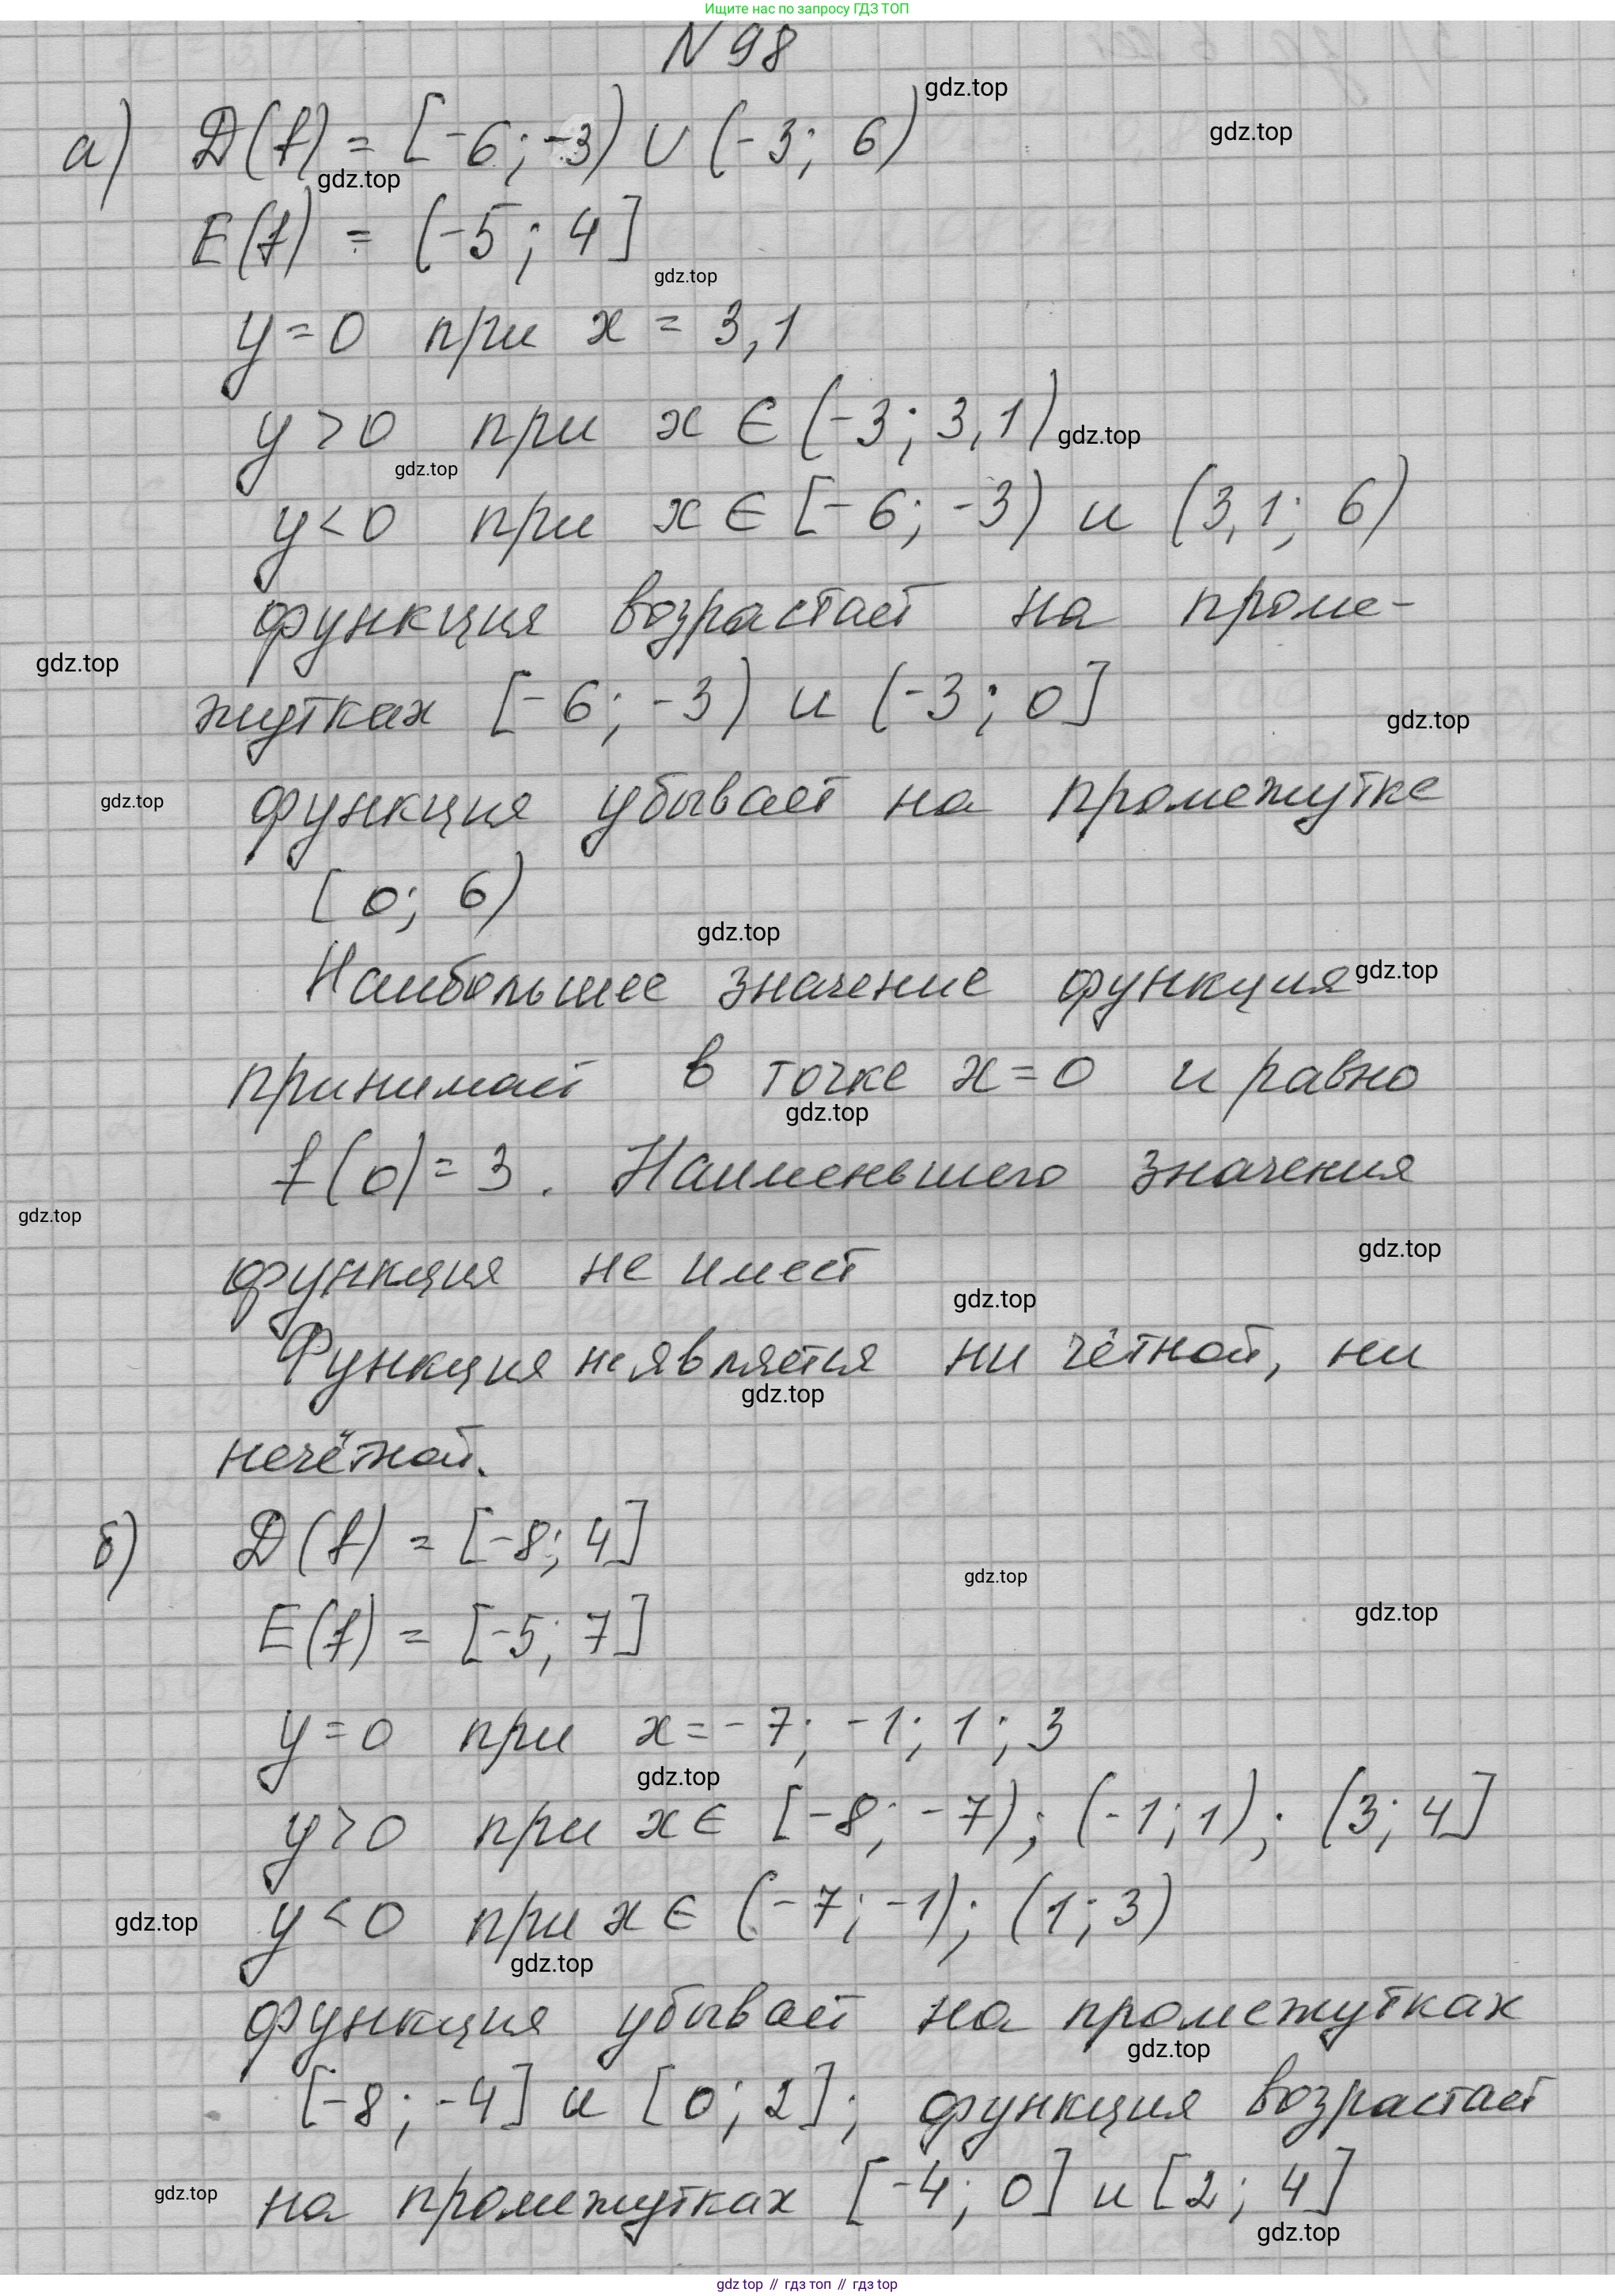 Ищите нас по запросу ГДЗ ТОП
N 98
gdz.top
а) D(f) = [-6; -3) ∪ (-3; 6)
gdz.top
gdz.top
E(f) = (-5; 4]
gdz.top
y=0 при x = 3,1
y>0 при x ∈ (-3; 3,1)
gdz.top
gdz.top
y<0 при x ∈ [-6; -3) и (3,1; 6)
функция возрастает на проме-
gdz.top
жутках [-6; -3) и (-3; 0]
gdz.top
gdz.top
функция убывает на промежутке
[0; 6)
gdz.top
Наибольшее значение функция
gdz.top
принимает в точке x=0 и равно
gdz.top
f(0)=3. Наименьшего значения
gdz.top
gdz.top
функция не имеет
gdz.top
Функция не является ни чётной, ни
gdz.top
нечётной.
б) D(f) = [-8; 4]
gdz.top
gdz.top
E(f) = [-5; 7]
y=0 при x=-7; -1; 1; 3
gdz.top
y>0 при x∈ [-8; -7); (-1; 1); (3; 4]
gdz.top
y<0 при x∈ (-7; -1); (1; 3)
gdz.top
функция убывает на промежутках
gdz.top
[-8; -4] и [0; 2]; функция возрастает
gdz.top
на промежутках [-4; 0] и [2; 4]
gdz.top
gdz top // гдз топ // gdz top